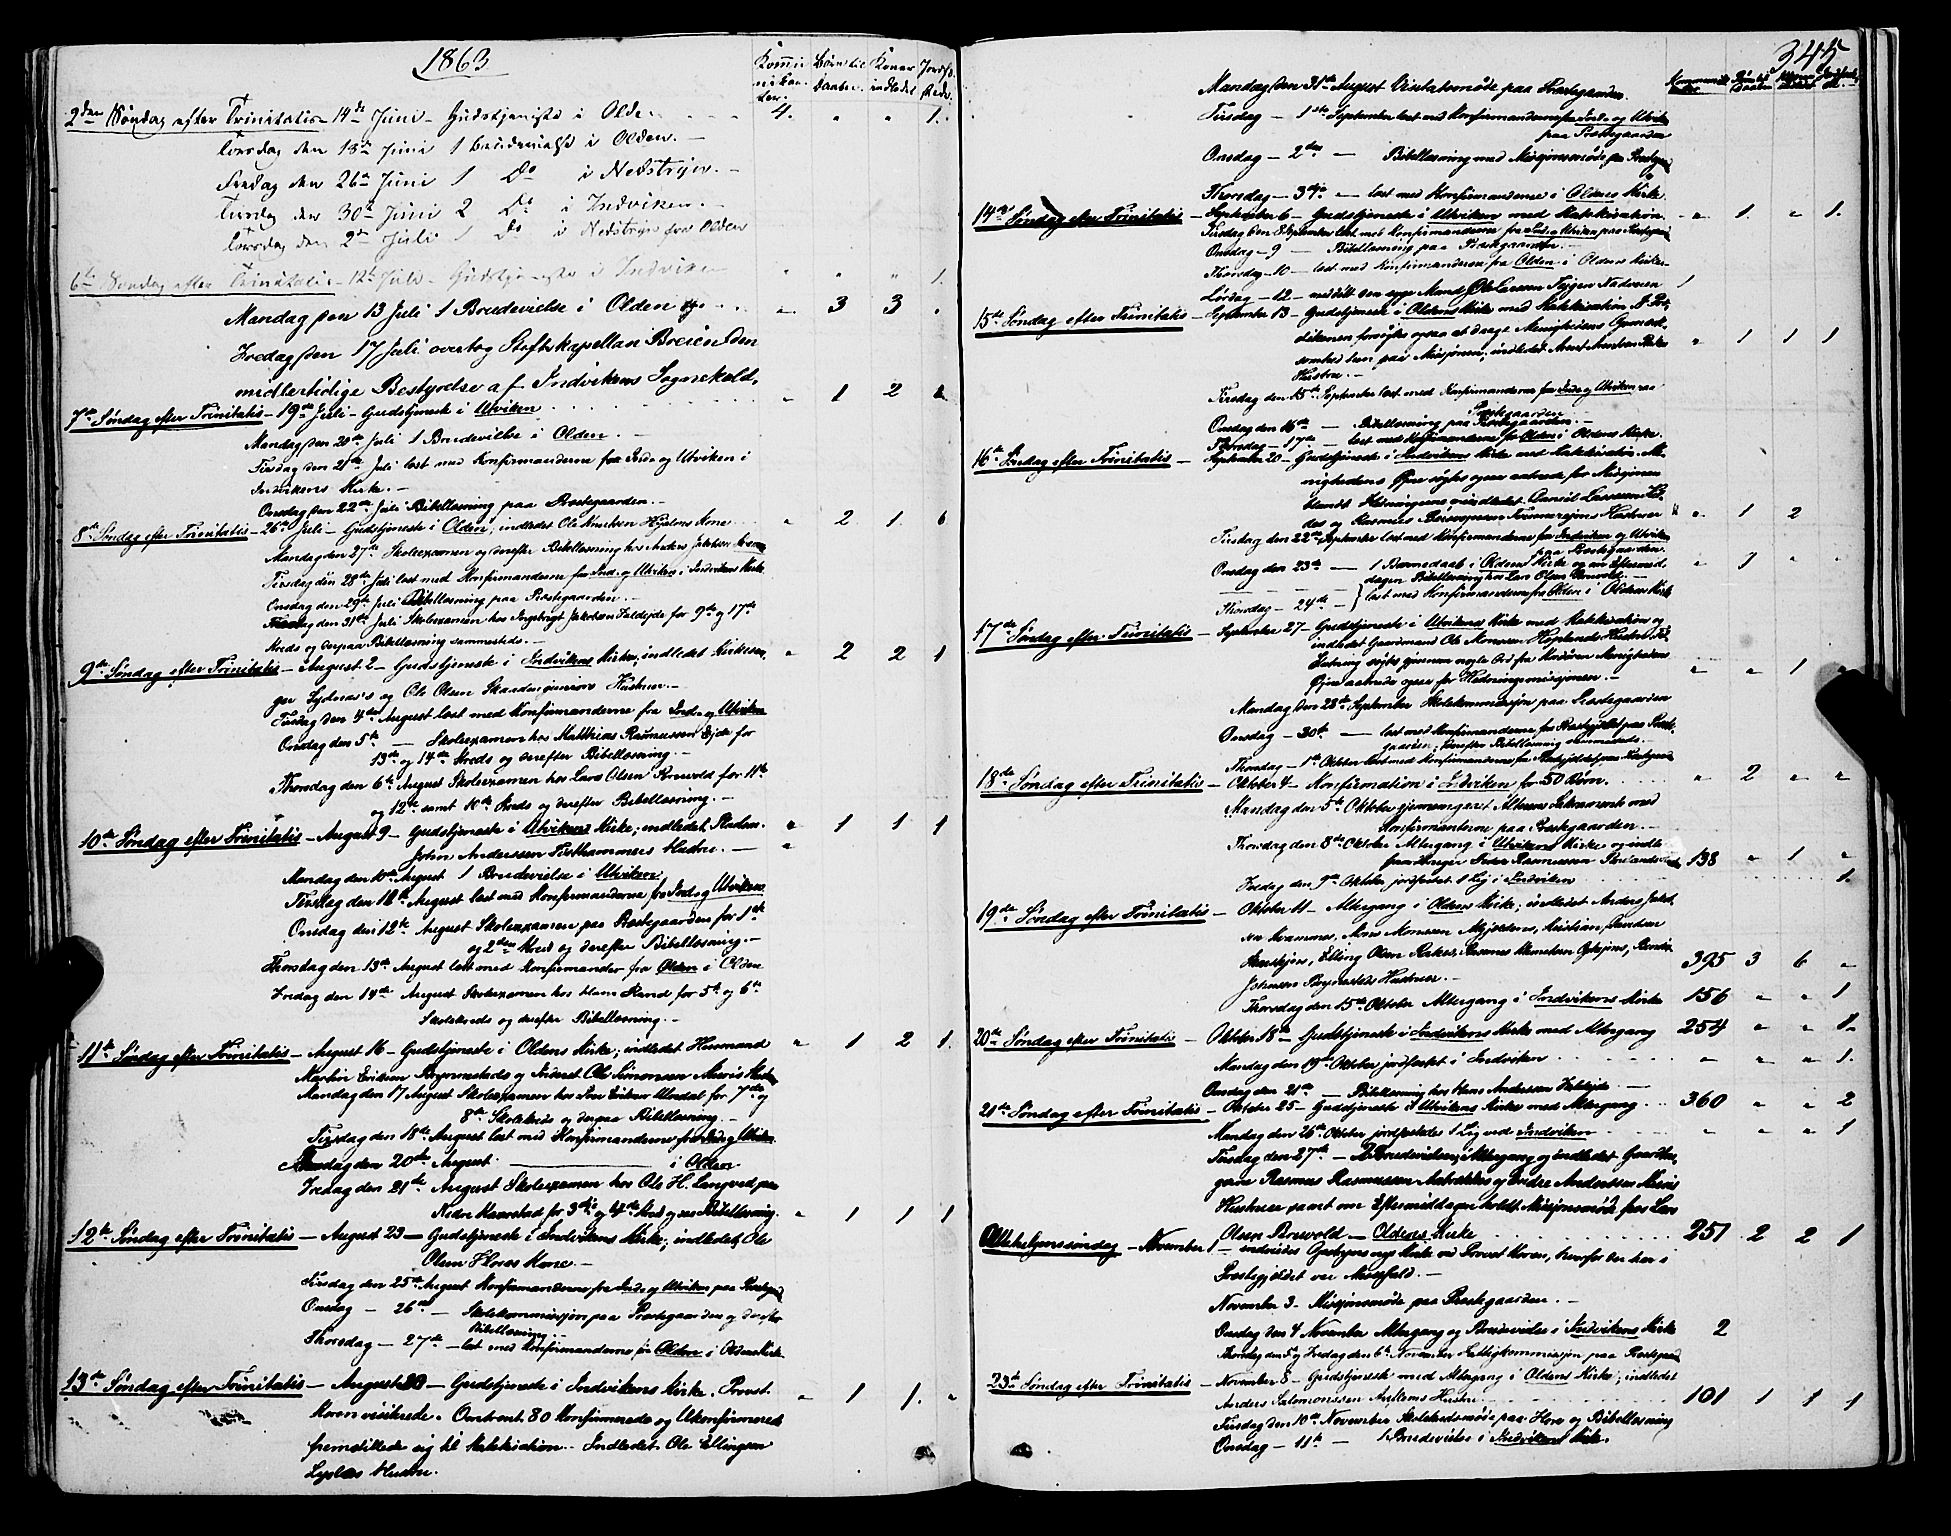 1863
Kommunikanter. Børn til Daaben. Koner indledet Jordfæstede.
2den Søndag efter Trinitatis 14de Juni - Gudstjeneste i Olden 4. " " 1.
Torsdag den 18de Juni 1 Brudevielse i Olden. -
Fredag den 26de Juni 1 Do i Nedstryn. -
Tirsdag den 30te Juni 2 Do i Indviken. -
Torsdag den 2de Juli 1 Do i Nedstryn fra Olden
6te Søndag efter Trinitatis - 12te Juli - Gudstjeneste i Indviken " " " 1.
Mandag den 13 Juli 1 Brudevielse i Olden - 3 3 .
Fredag den 17 Juli overtog Stiftskapellan Breien den
midlertidige Bestyrelse af Indvikens Sognekald.
7de Søndag efter Trinitatis - 19de Juli - Gudstjeneste i Utviken - 1 2
Mandag den 20de Juli 1 Brudevielse i Olden. -
Tirsdag den 21de Juli læst med Konfirmanderne fra Ind- og Utviken i
Indvikens Kirke. -
Onsdag den 22de Juli Bibellæsning paa Præstegaarden. -
8de Søndag efter Trinitatis - 26de Juli - Gudstjeneste i Olden, indledet Ole Knutsen Kone " 2 1. 6
Mandag den 27de Skoleexamen og derefter Bibellæsning hos Anders Jakobsen
Tirsdag den 28de Juli læst med Konfirmanderne fra Ind- og Utviken i Indvikens Kirke
Onsdag den 29de Juli Bibellæsning paa Præstegaarden. -
Fredag den 31te Juli Skoleexamen hos Jakobsen Faleide for 9de og 17de
Kreds og derpaa Bibellæsning sammesteds. -
9de Søndag efter Trinitatis - August 2 - Gudstjeneste i Indvikens Kirke; indledet Kirkesan- " 2 2 1
ger og Ole Olsen Skaadens juniors Hustruer. -
Tirsdag den 4de August læst med Konfirmanderne fra Ind- og Utviken
Onsdag den 5te - Skoleexamen hos Matthias Rasmussen Eide for
13de og 14de Kreds og derefter Bibellæsning. -
Thorsdag den 6te August Skoleexamen hos Lars Olsen Brevold for 11te
og 12te samt 10de Kreds og derefter Bibellæsning. -
10de Søndag efter Trinitatis - August 9 - Gudstjeneste i Utvikens Kirke; indledet " 1 1 1
John Anderssen Tisthammers Hustru. - "
Mandag den 10de August 1 Brudevielse i Utviken
Tirsdag den 11te August læst med Konfirmanderne fra Ind- og Utviken
Onsdag den 12te August Skoleexamen paa Præstegaarden for 1ste
og 2den Kreds og derefter Bibellæsning. -
Thorsdag den 13de August læst med Konfirmander fra Olden i Olden
Fredag den 14de August Skoleexamen hos for 5te og 6te
Skolekreds og derefter Bibellæsning. -
11te Søndag efter Trinitatis - August 16 - Gudstjeneste i Oldens Kirke; indledet Husmand " 1 2 1.
Martin Eriksen Brynnestads og Inderst Ole Simonsen
Mandag den 17 August Skoleexamen hos for 7de og
8de Skolekreds og derpaa Bibellæsning. -
Tirsdag den 18de August læst med Konfirmanderne fra Ind- og Utviken
Thorsdag den 20de August - i Olden
Fredag den 21de August Skoleexamen hos Ole H. paa
for 3die og 4de Kreds og saa Bibellæsning. - 1 1 1
12te Søndag efter Trinitatis - August 23 - Gudstjeneste i Indvikens Kirke; indledet, Ole
Olsen Kone. -
Tirsdag den 25de August Konfirmanderne fra Ind- og Utviken paa Præstegaard
Onsdag - 26de - Skolekommission paa Præstegaarden og derefter
Bibellæsning. -
Thorsdag - 27de - læst med Konfirmanderne fra Olden i Oldens Kirke
13de Søndag efter Trinitatis - August 30 - Gudstjeneste i Indvikens Kirke. Provst - 1 1. "
Koren visiterede. Omtrent 80 Konfirmerede og Ukonfirmerede
fremstillede sig til Katekisation. Indledet Ole Ellingsen
Hustru.
345
Mandag den 31te August Visitatsmøde paa Præstegaarden.
Tirsdag - 1ste September læst med Konfirmanderne fra Ind- og Utviken
paa Præstegaarden
Onsdag - 2den - Bibellæsning med Missionsmøde paa Præstegaard
Thorsdag - 3die - læst med Konfirmanderne i Oldens Kirke
14de Søndag efter Trinitatis - September 6 - Gudstjeneste i Utviken med Katekisation. " 1 " 1.
Tirsdag den 8 September læst med Konfirmanderne fra Ind- og Utviken paa Præstegaard
Onsdag - 9 - Bibellæsning paa Præstegaarden -
Thorsdag - 10 - læst med Konfirmanderne fra Olden i Oldens Kirke -
Lørdag - 12 - meddelt den syge Mand Nadveren 1
15de Søndag efter Trinitatis - September 13 - Gudstjeneste i Oldens Kirke med Katekisation. I Præ-
dikenen forsøgtes ogsaa at drage Menighedens Opmærk-
somhed hen paa Missionen; indledet " 1 1 1
Hustru. -
Tirsdag den 15de September læst med Konfirmanderne fra Ind- og Utviken paa
Præstegaarden.
Onsdag den 16de - Bibellæsning paa Præstegaarden. -
Thorsdag - 17de - læst med Konfirmanderne fra Olden i Oldens Kirke.
16de Søndag efter Trinitatis - September 20 - Gudstjeneste i Indvikens Kirke med Katekisation. Me-
nighedens Øine søgtes ogsaa aabnede for Missionen
blandt Hedningerne; indledet
og Rasmus Hustruer " 1 2
Tirsdag den 22de September læst med Konfirmanderne fra Indviken og Utviken
paa Præstegaarden.
Onsdag den 23de - 1 Barnedaab i Oldens Kirke og om Eftermid- " 1 " "
dagen Bibellæsning hos Lars Olsen Brevold. -
Thorsdag - 24de - læst med Konfirmanderne fra Olden i Oldens Kirke
17de Søndag efter Trinitatis - September 27 - Gudstjeneste i Utvikens Kirke med Katekisation og
indledet Gaardmand Ole Monssen Hustru.
søgtes gjennem nogle Ord fra Kordøren Menighedens
Øine aabnede ogsaa for Hedningemissionen. - " " 1 "
Mandag den 28de September Skolekommission paa Præstegaarden
Onsdag - 30te - læst med Konfirmanderne fra Præstegjeldet paa Præste-
gaarden; derefter Bibellæsning sammesteds. -
Thorsdag - 1ste Oktober læst med Konfirmanderne fra Præstegjeldet paa Præstegaard
18de Søndag efter Trinitatis - Oktober 4 - Konfirmation i Indviken for 50 Børn. " 2 " "
Mandag den 5te Oktober gjennemgaaet Alterens Sakramente med
Konfirmanterne paa Præstegaarden. -
Thorsdag den 8de Oktober Altergang i Utvikens Kirke og indle-
Peder Rasmussen 138 " 1 "
Fredag den 9de Oktober jordfæstet 1 Lig i Indviken 1.
19de Søndag efter Trinitatis - Oktober 11 - Altergang i Oldens Kirke; indledet Anders Jakob-
sen Kvammes, Mons Monssen Kristian
Elling Olsen Rasmus 395 3 6 "
Johnsen Brynestads Hustruer. -
Thorsdag den 15de Oktober Altergang i Indvikens Kirke 156 " " 1
20de Søndag efter Trinitatis - Oktober 18de - Gudstjeneste i Indvikens Kirke med Altergang 254 " " 1.
Mandag den 19de Oktober jordfæstet i Indviken - " " 1.
Onsdag den 21de - Bibellæsning hos Hans Anderssen Faleide. -
21de Søndag efter Trinitatis - Oktober 25 - Gudstjeneste i Utvikens Kirke med Altergang 360 " " 2
Mandag den 26de Oktober jordfæstedes 1 Lig ved Indviken - " " 1
Tirsdag den 27de - 2 Brudevielser, Altergang og indledet Gaardbru-
gerne Rasmus Rasmussen og Anderssen
Hustruer samt om Eftermiddagen holdt Missionsmøde hos Lars
Olsen Brevold - Oldens Kirke 251 2 2 1
Allehelgenssøndag - November 1 - indviedes Kirke ved Provst Koren, hvorfor der her i
Præstegjeldet var Messefald. -
November 3 - Missionsmøde paa Præstegaarden. -
Onsdag den 4 November Altergang og Brudevielse i Indvikens Kirke 2
Thorsdag den 5te og Fredag den 6te November Fattigkommission paa Præstegaard
23de Søndag efter Trinitatis - November 8 - Gudstjeneste med Altergang i Oldens Kirke; indledet
Anders Salomonssen Hustru. - 101 1 1 1
Tirsdag den 10de November Skolekredsmøde paa og Bibellæsning
Onsdag - 11te - 1 Brudevielse i Indvikens Kirke.